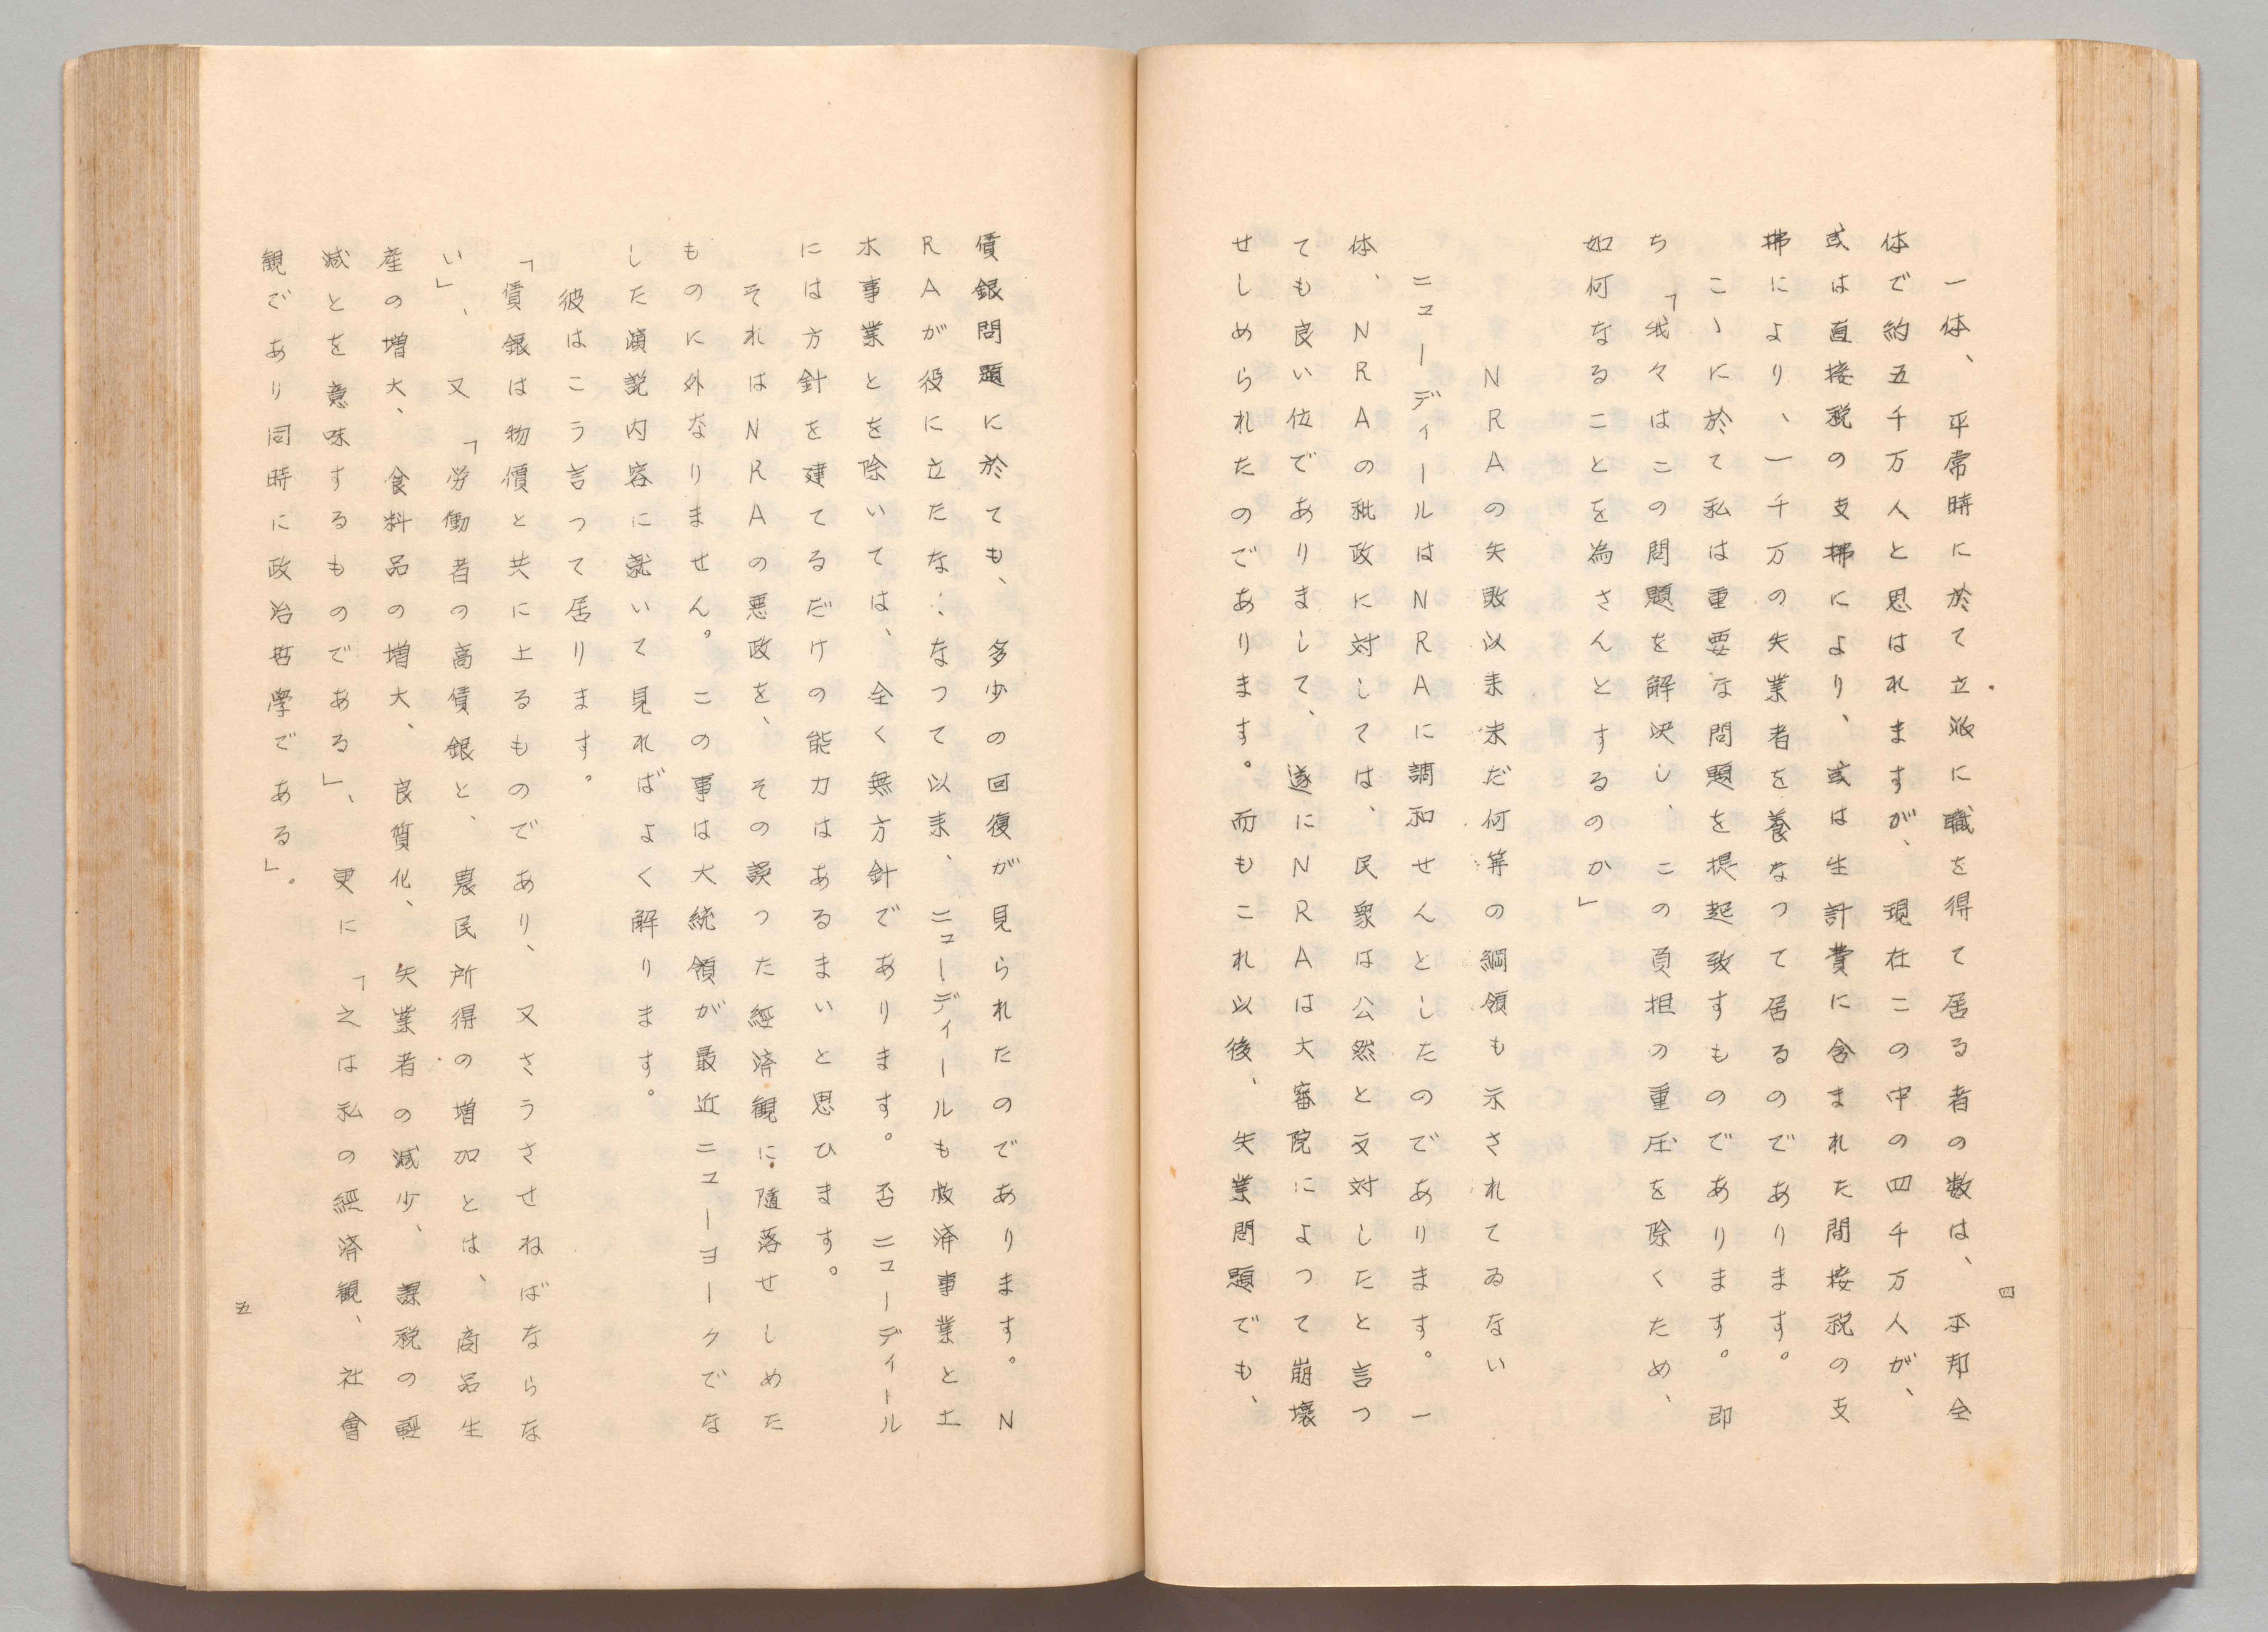 四
一体、平常時に於て立派に職を得て居る者の数は、本邦全
体で約五千万人と思はれますが、現在この中の四千万人が、
或は直接税の支拂により、或は生計費に含まれた間接税の支
拂により、一千万の失業者を養なつて居るのであります。
こゝに於て私は重要な問題を提起致すものであります。即
ち「我々はこの問題を解決し、この負担の重圧を除くため、
如何なることを為さんとするのか」
NRAの失敗以来未だ何等の綱領も示されてゐない
ニューディールはNRAに調和せんとしたのであります。一
体、NRAの秕政に対しては、民衆は公然と反対したと言つ
ても良い位でありまして、遂にNRAは大審院によつて崩壊
せしめられたのであります。而もこれ以後、失業問題でも、
賃銀問題に於ても、多少の回復が見られたのであります。N
RAが役に立たな…なつて以来、ニューディールも救済事業と土
木事業とを除いては、全く無方針であります。否ニューディール
には方針を建てるだけの能力はあるまいと思ひます。
それはNRAの悪政を、その誤つた経済観に隨落せしめた
ものに外なりません。この事は大統領が最近ニューヨークでな
した演説内容に就いて見ればよく解ります。
彼はこう言つて居ります。
「賃銀は物價と共に上るものであり、又さうさせねばならな
い」、又「労働者の高賃銀と、農民所得の増加とは、商品生
産の増大、食料品の増大、良質化、失業者の減少、課税の軽
減とを意味するものである」、更に「之は私の經済観、社會
観であり同時に政治哲學である」。
五